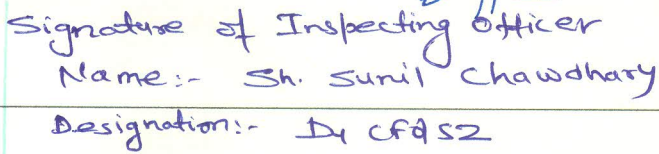 Signature of Inspecting Officer
Name:- Sh. Sunil Chawdhary
Designation:- Dy